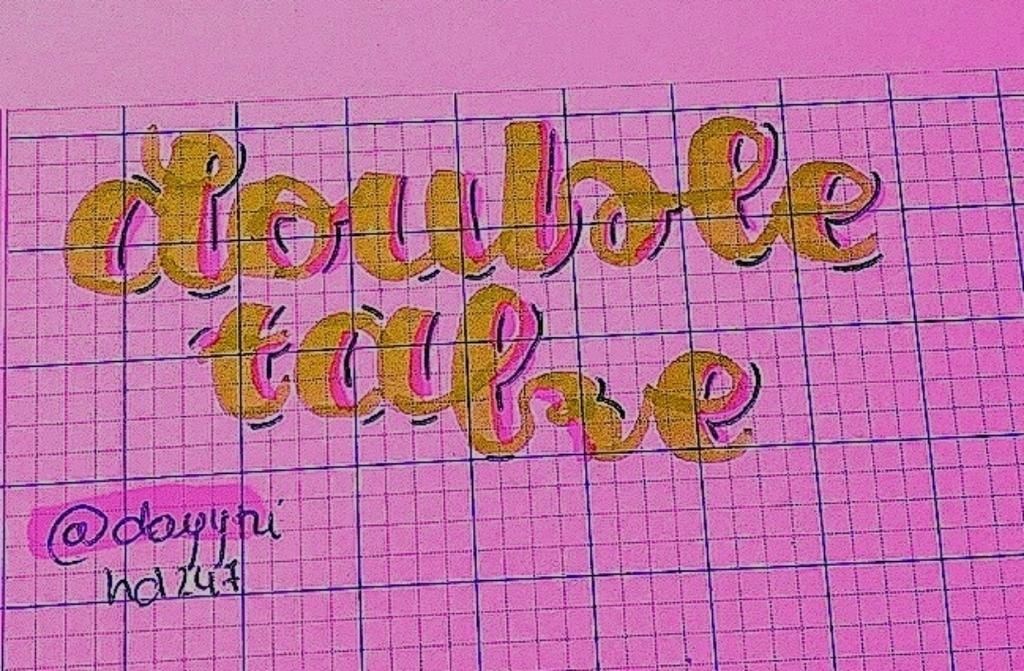 double
take
@dayyni
hd247